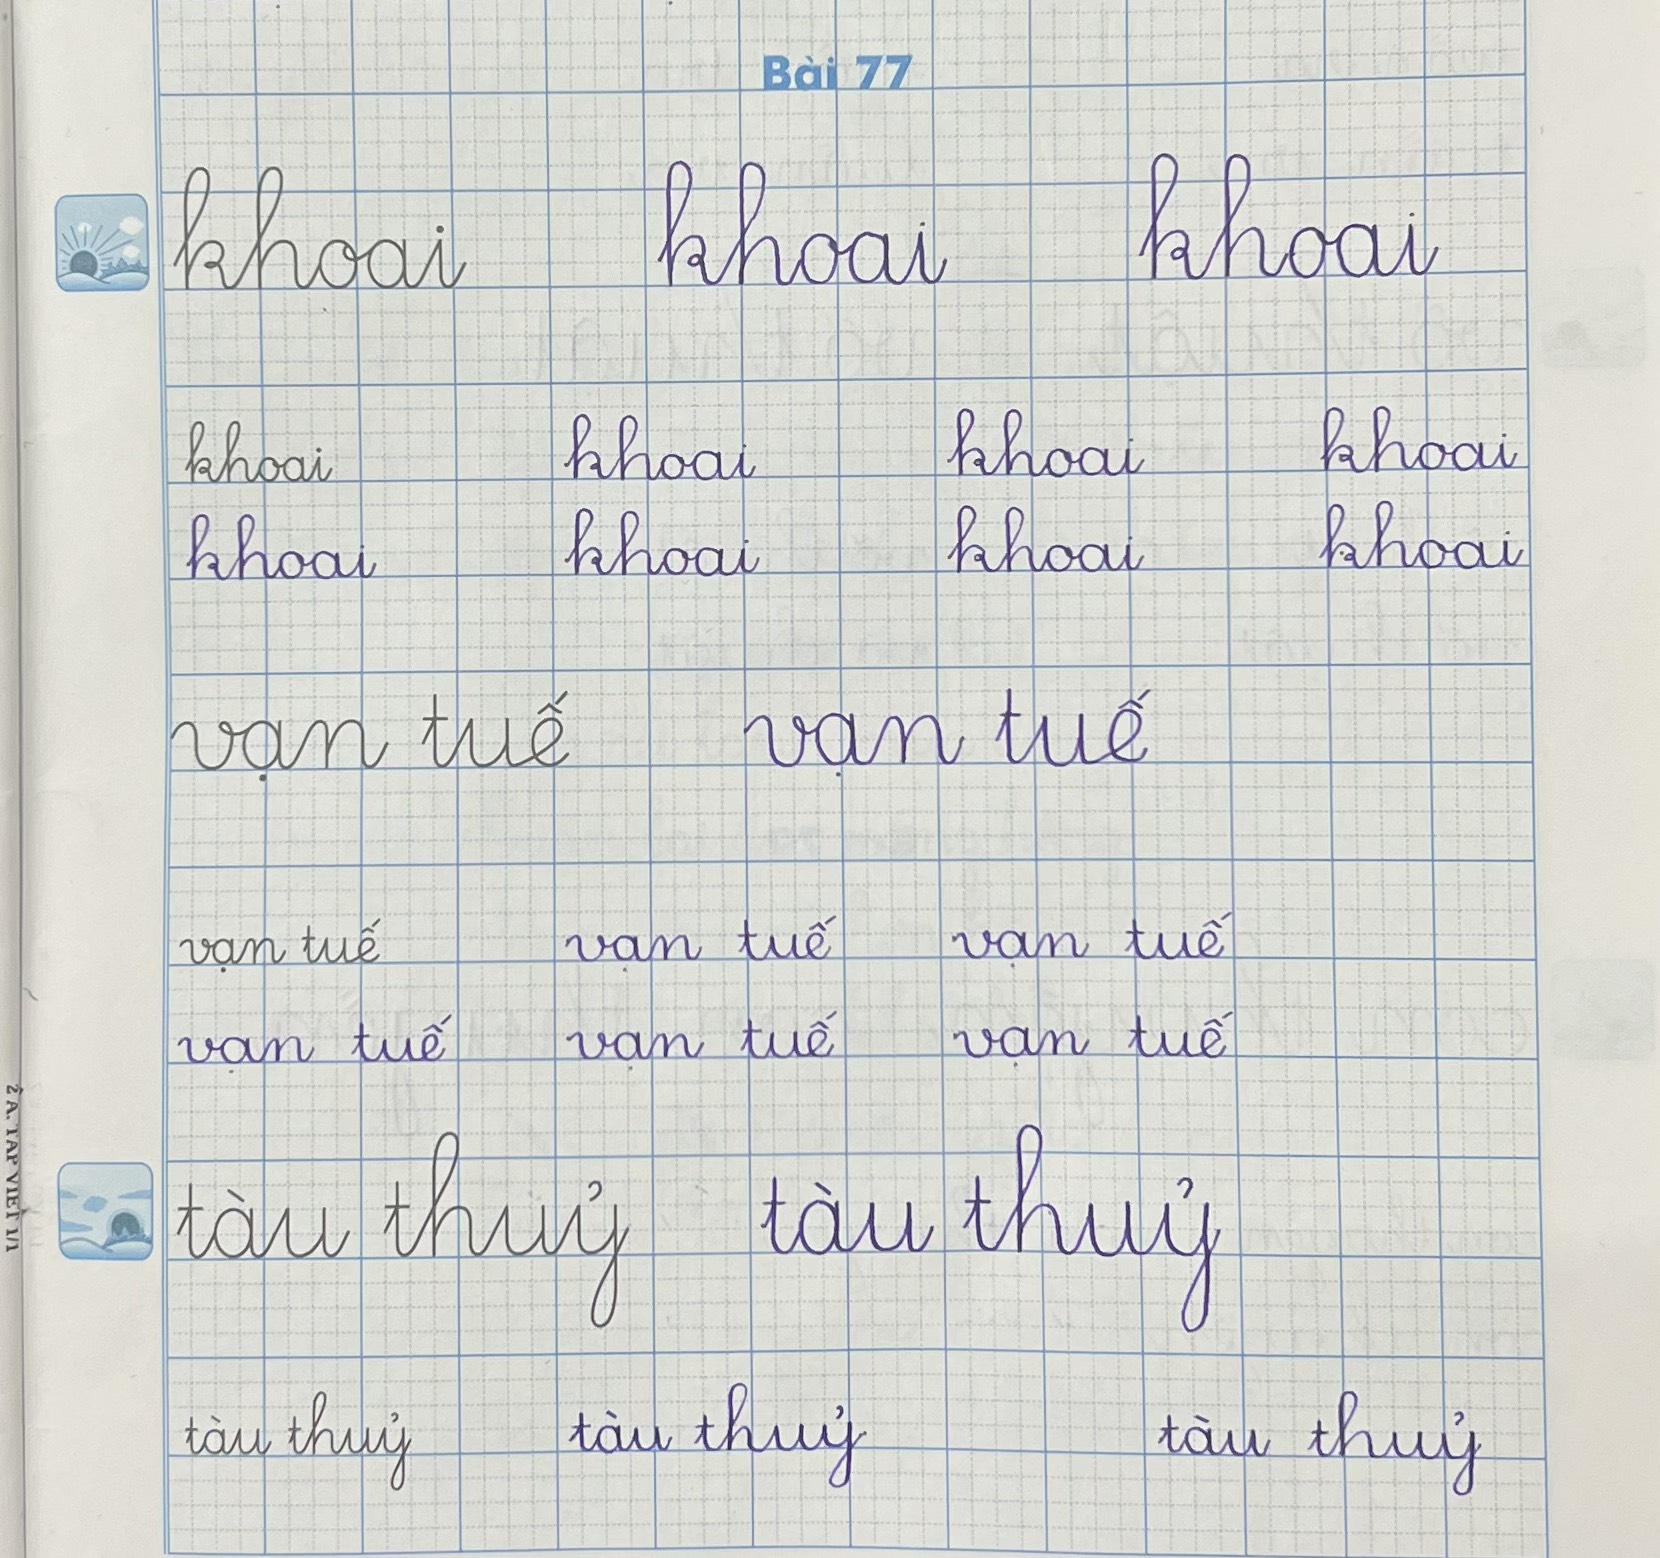 Bài 77
khoai khoai khoai
khoai khoai khoai khoai
khoai khoai khoai khoai
vạn tuế vạn tuế
vạn tuế vạn tuế vạn tuế
vạn tuế vạn tuế vạn tuế
tàu thuỷ tàu thuỷ
tàu thuỷ tàu thuỷ tàu thuỷ
2 A. TAP VIET 1/1